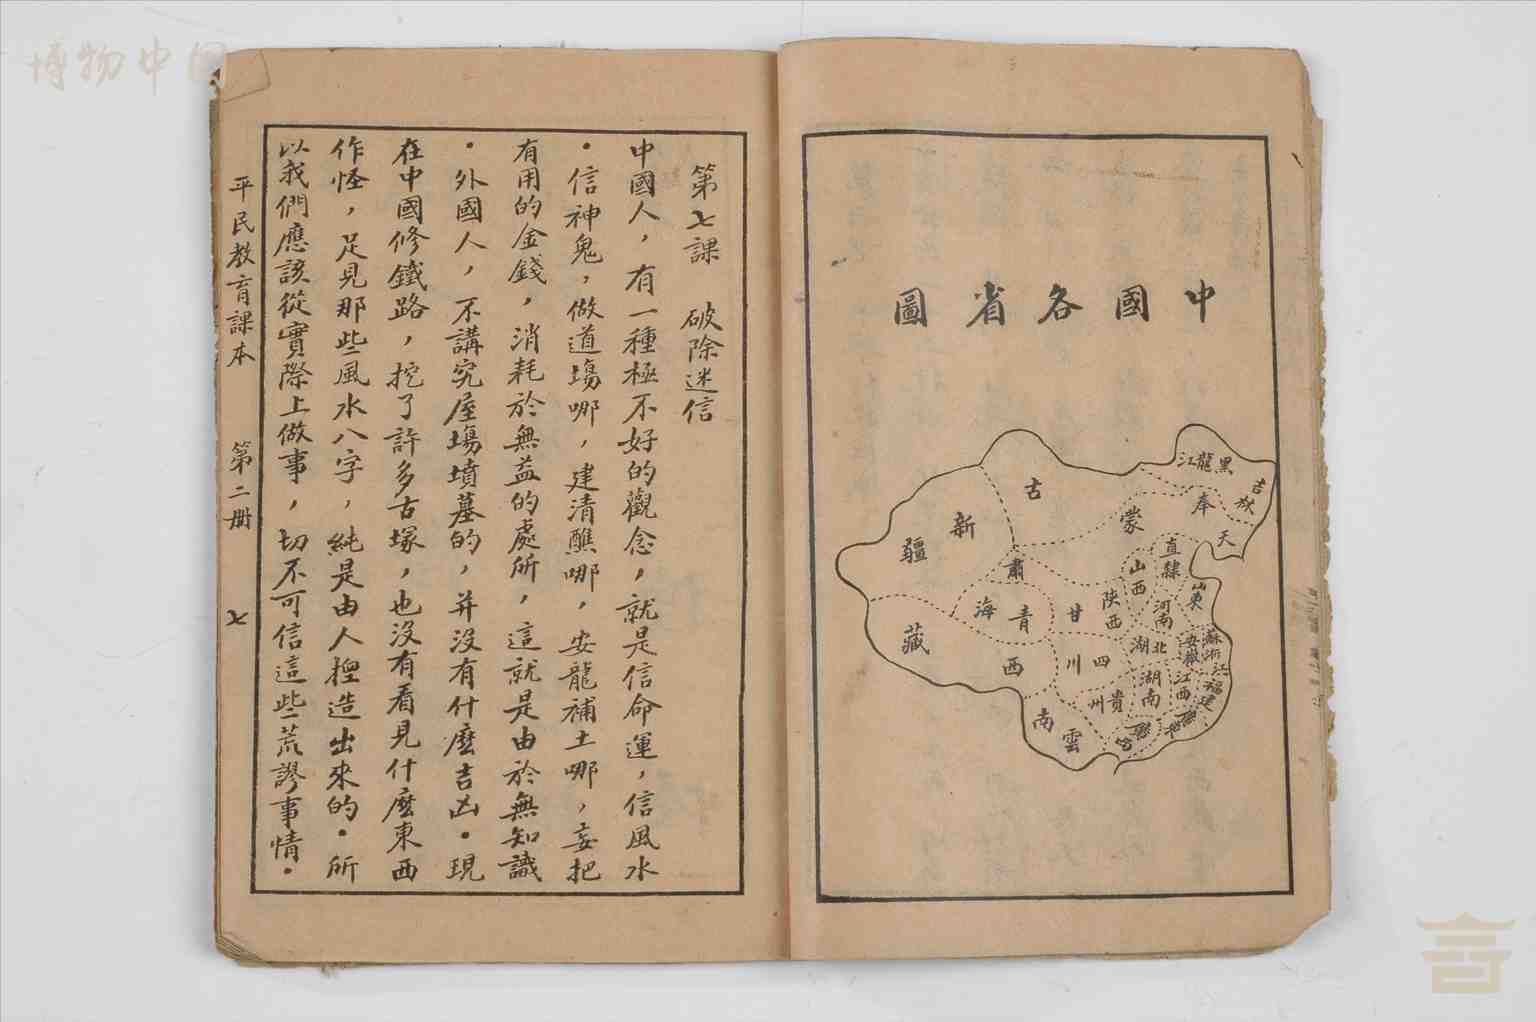 博物中国
中國各省圖
黑龍江
吉林
奉天
蒙古
新疆
直隸
山西
山東
甘肅
陝西
河南
青海
西藏
四川
湖北
安徽
江蘇
浙江
湖南
江西
福建
貴州
雲南
第七課　破除迷信
中國人，有一種極不好的觀念，就是信命運，信風水
・信神鬼，做道塲哪，建清醮哪，安龍補土哪，妄把
有用的金錢，消耗於無益的處所，這就是由於無知識
・外國人，不講究屋塲墳墓的，并沒有什麽吉凶・現
在中國修鐵路，挖了許多古塚，也沒有看見什麽東西
作怪，足見那些風水八字，純是由人揑造出來的・所
以我們應該從實際上做事，切不可信這些荒謬事情・
平民教育課本　第二册　七